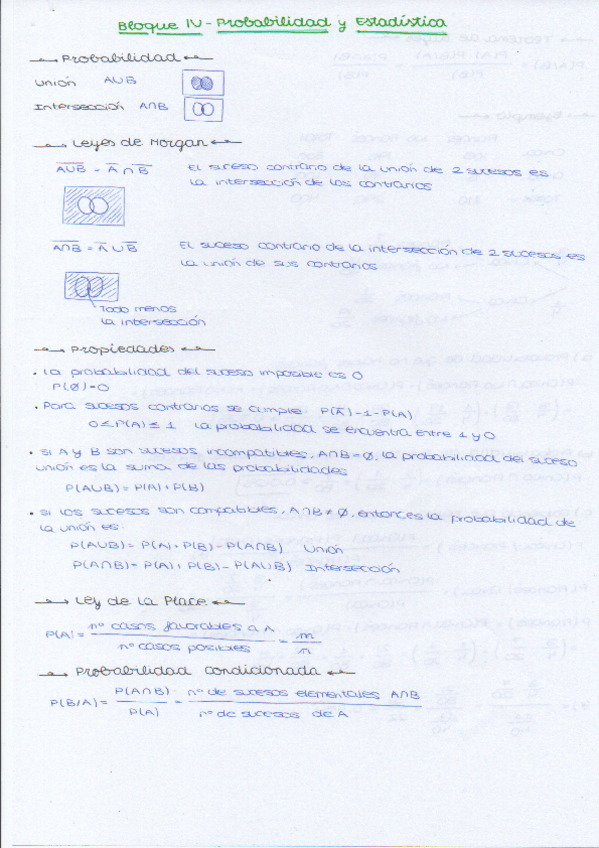 Bloque IV - Probabilidad y Estadística
Probabilidad
Unión A∪B
Intersección A∩B
Leyes de Morgan
A̅∪̅B̅ = A̅ ∩ B̅ El suceso contrario de la unión de 2 sucesos es
la intersección de los contrarios
A̅∩̅B̅ = A̅ ∪ B̅ El suceso contrario de la intersección de 2 sucesos es
la unión de sus contrarios
Todo menos
la intersección
Propiedades
· La probabilidad del suceso imposible es 0
P(∅)=0
· Para sucesos contrarios se cumple: P(A̅) = 1 - P(A)
0 ≤ P(A) ≤ 1 la probabilidad se encuentra entre 1 y 0
· Si A y B son sucesos incompatibles, A∩B = ∅, la probabilidad del suceso
unión es la suma de las probabilidades
P(A∪B) = P(A) + P(B)
· Si los sucesos son compatibles, A∩B ≠ ∅, entonces la probabilidad de
la unión es:
P(A∪B) = P(A) + P(B) - P(A∩B) Unión
P(A∩B) = P(A) + P(B) - P(A∪B) Intersección
Ley de la Place
P(A) = nº casos favorables a A / nº casos posibles = m / n
Probabilidad condicionada
P(B/A) = P(A∩B) / P(A) = nº de sucesos elementales A∩B / nº de sucesos de A